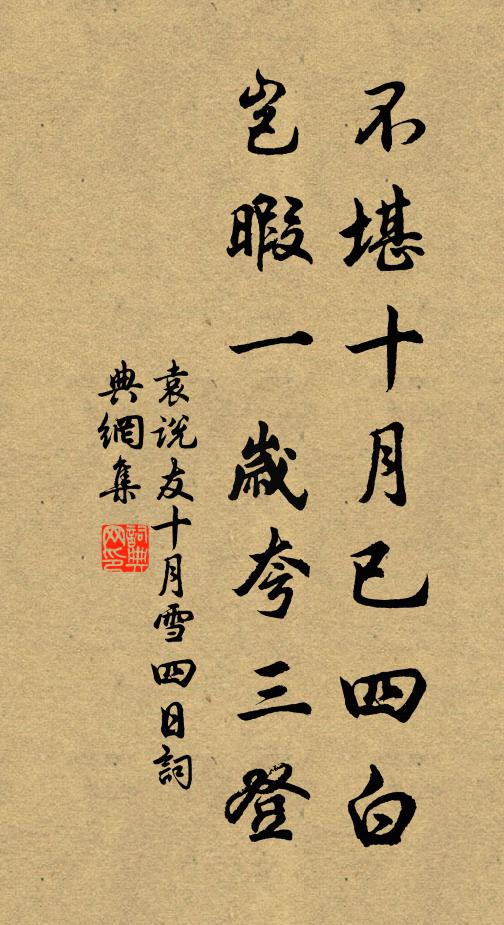 不堪十月已四白
豈暇一歲夸三登
袁說友十月雪四日詞
典網集
詞典
网印